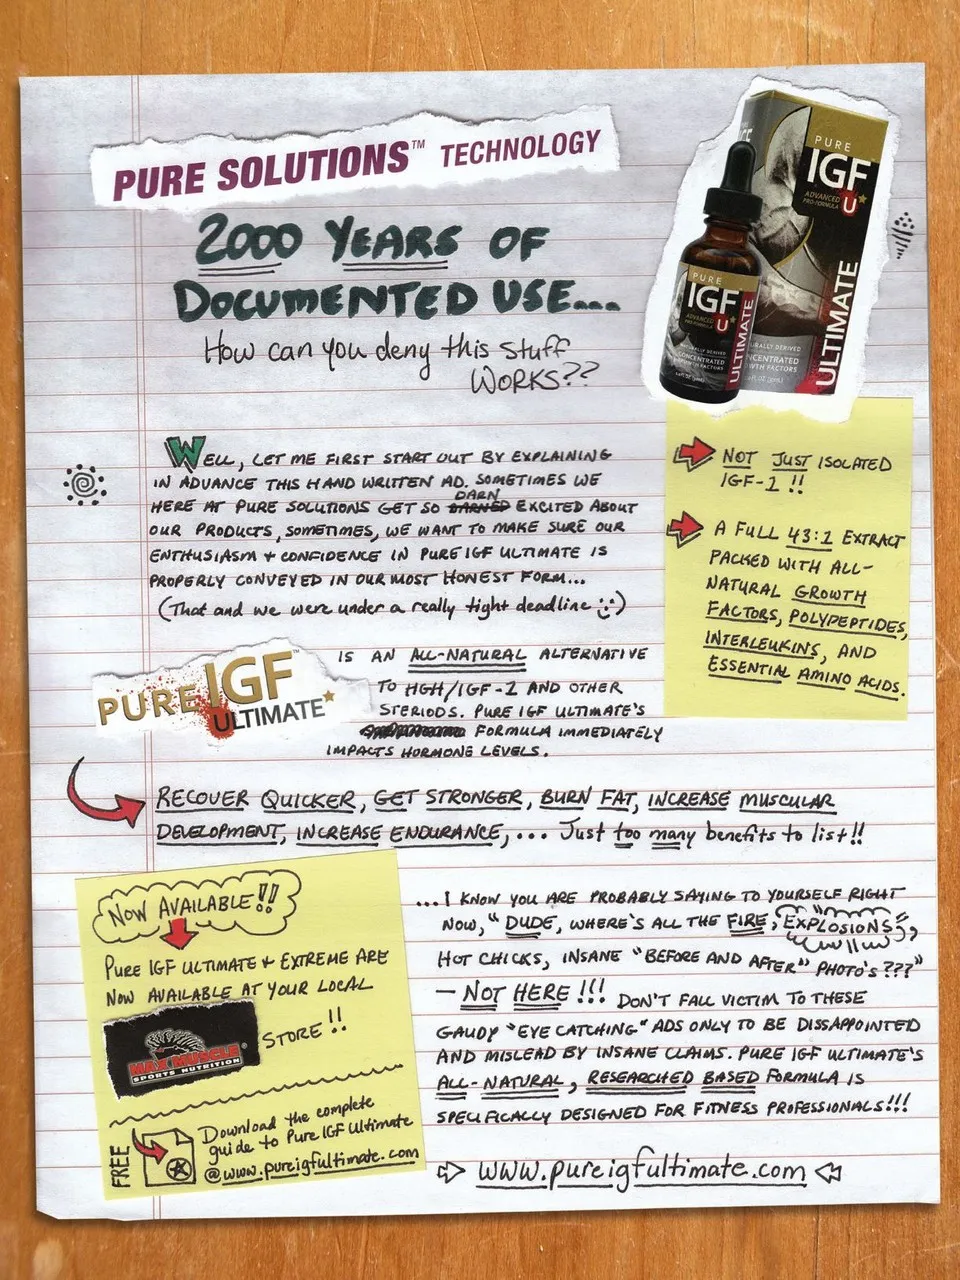 PURE SOLUTIONS™ TECHNOLOGY
2000 YEARS OF
DOCUMENTED USE....
How can you deny this stuff
WORKS??
PURE
IGF
ADVANCED
PRO-FORMULA
U
ULTIMATE
CONCENTRATED
GROWTH FACTORS
PURE
IGF
ADVANCED
U
ULTIMATE
NATURALLY DERIVED
CONCENTRATED
WELL, LET ME FIRST START OUT BY EXPLAINING
IN ADVANCE THIS HAND WRITTEN AD. SOMETIMES WE
HERE AT PURE SOLUTIONS GET SO DARN EXCITED ABOUT
OUR PRODUCTS, SOMETIMES, WE WANT TO MAKE SURE OUR
ENTHUSIASM + CONFIDENCE IN PURE IGF ULTIMATE IS
PROPERLY CONVEYED IN OUR MOST HONEST FORM...
(That and we were under a really tight deadline :))
NOT JUST ISOLATED
IGF-1 !!
A FULL 43:1 EXTRACT
PACKED WITH ALL-
NATURAL GROWTH
FACTORS, POLYPEPTIDES,
INTERLEUKINS, AND
ESSENTIAL AMINO ACIDS.
PURE IGF™
ULTIMATE
IS AN ALL-NATURAL ALTERNATIVE
TO HGH/IGF-1 AND OTHER
STERIODS. PURE IGF ULTIMATE'S
FORMULA IMMEDIATELY
IMPACTS HORMONE LEVELS.
RECOVER QUICKER, GET STRONGER, BURN FAT, INCREASE MUSCULAR
DEVELOPMENT, INCREASE ENDURANCE,... Just too many benefits to list!!
NOW AVAILABLE!!
PURE IGF ULTIMATE + EXTREME ARE
NOW AVAILABLE AT YOUR LOCAL
MAX MUSCLE®
SPORTS NUTRITION
STORE!!
FREE
Download the complete
guide to Pure IGF Ultimate
@www.pureigfultimate.com
...I KNOW YOU ARE PROBABLY SAYING TO YOURSELF RIGHT
NOW, "DUDE, WHERE'S ALL THE FIRE, EXPLOSIONS,
HOT CHICKS, INSANE "BEFORE AND AFTER" PHOTO'S???"
— NOT HERE!!! DON'T FALL VICTIM TO THESE
GAUDY "EYE CATCHING" ADS ONLY TO BE DISSAPOINTED
AND MISLEAD BY INSANE CLAIMS. PURE IGF ULTIMATE'S
ALL-NATURAL, RESEARCHED BASED FORMULA IS
SPECIFICALLY DESIGNED FOR FITNESS PROFESSIONALS!!!
www.pureigfultimate.com